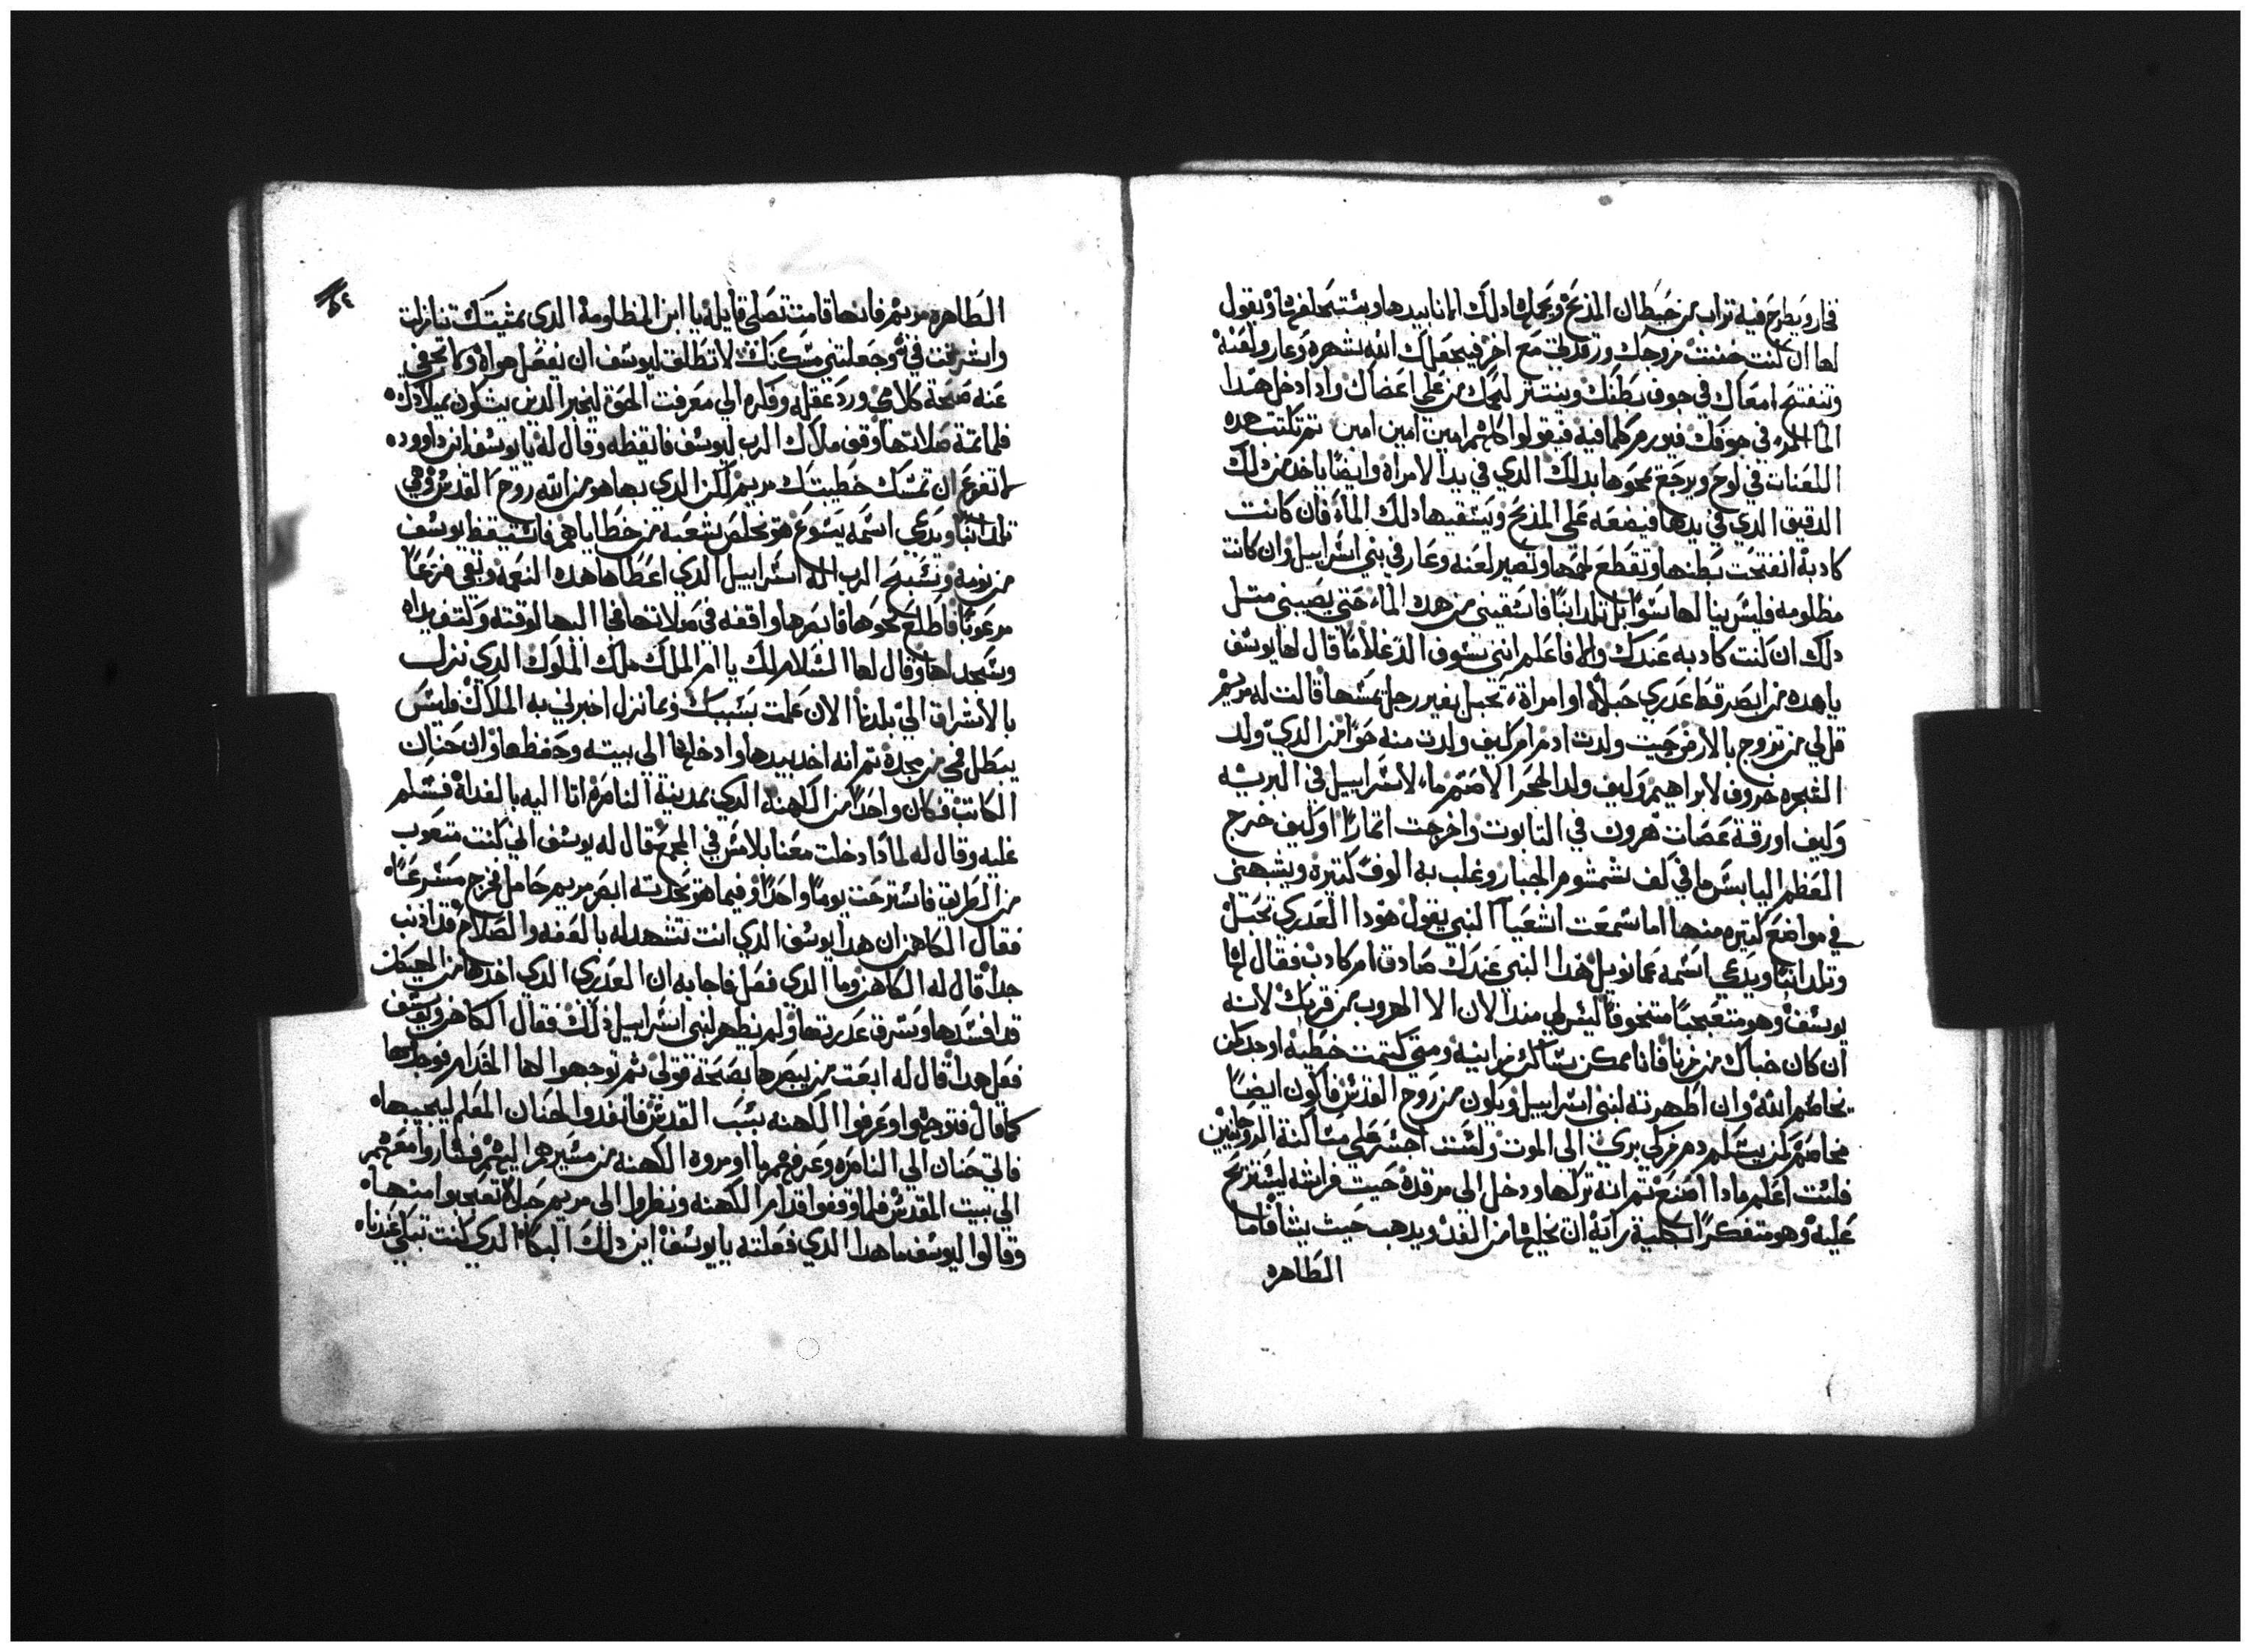 فخار ويطرح فيه تراب من خيطان المدبح ويجعل دلك الما بايديها ويستحلفها ويقول
لها ان كنت خنتت مزوجك ورقدتي مع اخر فيجعلك الله شهره وعار ولعنة
وتنفتح امعاك في جوف بطنك وينتتر لحمك من على اعضاك وادا دخل هدا
الما المر في جوفك فيورم كلما فيه فيقولوا كلهم امين امين امين تم تكتب هده
اللعنات في لوح ويرجع يمحوها بدلك الدي في يد الامراة وايضًا ياخد من دلك
الدقيق الدي في يدها فيضعه على المدبح ويسقيها دلك الماء فان كانت
كادبة انفتحت بطنها وتقطع لحمها وتصير لعنه وعار في بني اسراييل وان كانت
مظلومه فليس ينالها سوًا بل تلد ابنًا فاسقيني من هدا الماء حتى يصيبني متل
دلك ان كنت كادبه عندك والا فاعلم انني سوف الد غلامًا قال لها يوسف
يا هده من ابصر قط عدري حبلاء او امراة تحبل بغير رجل يمسها قالت له مريم
قل لي من تزوج بالارض حيت ولدت ادم ام كيف ولدت منه حوا من الدي ولد
الشجره خروف لابراهيم وكيف ولد الحجر الاصم ماء لاسراييل في البريه
وكيف اورقة عصات هرون في التابوت واخرجت اتمارًا او كيف خرج
العظم اليابس ما في كف شمشوم الجبار وغلب به الوف كتيرة ويشبهني
في مواضع كتيره منها اما سمعت اشعيا النبي يقول هودا العدري تحبل
وتلد ابنًا ويدعي اسمه عمانويل هدا النبي عندك صادق ام كادب فقال لها
يوسف وهو متعجبًا متخوفًا ليس لي مند الان الا الهروب من قربك لانه
ان كان حبلك من زنا فانا ممكن ساكن زانيه ومتى كتمت خطيه اوجد كمن
يخاصم الله وان اظهرته لبني اسراييل ويكون من روح القدس فاكون ايضًا
مخاصم كمن يسلم دم زكي بري الى الموت ولست اجسر على مساكنة الروحانيين
فلست اعلم مادا اصنع تم انه تركها ودخل الى مرقده حيت فراشه ليستريح
عليه وهو متفكرًا بكلية رايه ان يخليها من الغد ويدهب حيت يشا فاما
الطاهره
٥٤
الطاهره مريم فانها قامت تصلي قايله يا ابن المظلومة الدي بمشيتك تنازلت
واشرفت في وجعلتني مسكنك لا تطلق ليوسف ان يفعل هواه ولا تخفي
عنه صحة كلامي ورد عقله وفكره الي معرفت الحق لتخبر الدين يشكون بميلادك
فلما تمة صلاتها وقف ملاك الرب ليوسف فايقظه وقال له يا يوسف ابن داوود
لا تفزع ان تمسك خطيبتك مريم لكن الدي بها هو من الله روح القدس وهي
تلد ابنًا ويدعي اسمه يسوع هو يخلص شعبه من خطاياهم فاستيقظ يوسف
من نومه وسبح الرب اله اسراييل الدي اعطاها هده النعمه وبقي فزعًا
مرعوبًا فاطلع نحوها فابصرها واقفه في صلاتها فجا اليها لوقته وكتف يداه
وسجد لها وقال لها السلام لك يا ام الملك ملك الملوك الدي نزل
بالاشراق الي بلدنا الان علمت بسببك وبما نزل اخبرني به الملاك فليس
يبطل فمي من مجده تم انه اخد بيدها وادخلها الى بيته وحفظها وان حنان
الكاتب فكان واحدًا من الكهنه الدي بمدينة الناصرة اتا اليه بالغداة فسلم
عليه وقال له لمادا دخلت معنا بلامس في المجمع قال له يوسف اني كنت متعوب
من الطريق فاسترحت يومًا واحدًا وفيما هو يحدته ابصر مريم حامل فخرج مسرعًا
فقال الكاهن ان هدا يوسف الدي انت تشهد له بالعفه والصلاح قد ادنب
جدًا قال له الكاهن وما الدي فعل فاجابه ان العدري الدي اخدها من الهيكل
قد افسدها وسرق عدريتها ولم يظهر لبني اسراييل دلك فقال الكاهن ويوسف
فعل هدا قال له ابعت من يبصرها بصحة قولي تم توجهوا لها الخدام فوجدوها
كما قال فتوجهوا وعرفوا الكهنه ببيت القدس فانفدوا لحنان المعلم ليجيبها
فاتي حنان الي الناصره وعرفهم بما اومروه الكهنه من مسيرهم اليهم فساروا معهم
الي بيت المقدس فلما وقفوا قدام الكهنه ونظروا الى مريم حبلا تعجبوا منها
وقالوا ليوسف ما هدا الدي فعلته يا يوسف اين دلك البكا الدي كنت تبكي عندنا